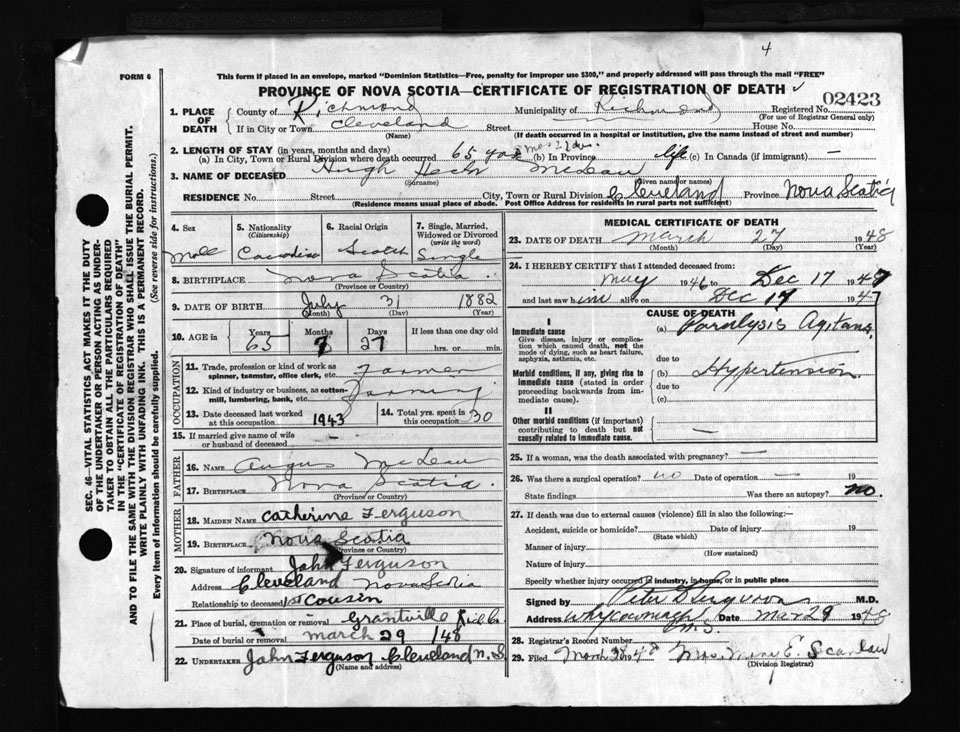 4
FORM 6
This form if placed in an envelope, marked "Dominion Statistics—Free, penalty for improper use $300," and properly addressed will pass through the mail "FREE"
PROVINCE OF NOVA SCOTIA—CERTIFICATE OF REGISTRATION OF DEATH
02423
1. PLACE OF DEATH County of Richmond Municipality of Richmond Registered No.
(For use of Registrar General only)
If in City or Town Cleveland Street House No.
(Name) (If death occurred in a hospital or institution, give the name instead of street and number)
2. LENGTH OF STAY (in years, months and days)
(a) In City, Town or Rural Division where death occurred 65 yrs (b) In Province life (c) In Canada (if immigrant) —
3. NAME OF DECEASED Hugh McLean
(Surname) (Given name or names)
RESIDENCE No. Street City, Town or Rural Division Cleveland Province Nova Scotia
(Residence means usual place of abode. Post Office Address for residents in rural parts not sufficient)
4. Sex 5. Nationality (Citizenship) 6. Racial Origin 7. Single, Married, Widowed or Divorced (write the word)
Male Canadian Scotch Single
8. BIRTHPLACE Nova Scotia
(Province or Country)
9. DATE OF BIRTH July 31 1882
(Month) (Day) (Year)
10. AGE in Years Months Days If less than one day old
65 7 27 hrs. or min.
OCCUPATION
11. Trade, profession or kind of work as spinner, teamster, office clerk, etc. Farmer
12. Kind of industry or business, as cotton-mill, lumbering, bank, etc. Farming
13. Date deceased last worked at this occupation 1943 14. Total yrs. spent in this occupation 30
15. If married give name of wife or husband of deceased —
FATHER
16. NAME Angus McLean
17. BIRTHPLACE Nova Scotia
(Province or Country)
MOTHER
18. MAIDEN NAME Catherine Ferguson
19. BIRTHPLACE Nova Scotia
(Province or Country)
20. Signature of informant John Ferguson
Address Cleveland Nova Scotia
Relationship to deceased 1st Cousin
21. Place of burial, cremation or removal Grantville Rich Co.
Date of burial or removal March 29 /48
22. UNDERTAKER John Ferguson Cleveland N.S.
(Name and address)
MEDICAL CERTIFICATE OF DEATH
23. DATE OF DEATH March 27 1948
(Month) (Day) (Year)
24. I HEREBY CERTIFY that I attended deceased from:
May 1946 to Dec 17 1947
and last saw him alive on Dec 17 1947
CAUSE OF DEATH
I
Immediate cause (a) Paralysis Agitans
Give disease, injury or complication which caused death, not the mode of dying, such as heart failure, asphyxia, asthenia, etc.
due to
Morbid conditions, if any, giving rise to immediate cause (stated in order proceeding backwards from immediate cause). (b) Hypertension
due to
(c)
II
Other morbid conditions (if important) contributing to death but not causally related to immediate cause. —
25. If a woman, was the death associated with pregnancy? —
26. Was there a surgical operation? no Date of operation — 19
State findings Was there an autopsy? no.
27. If death was due to external causes (violence) fill in also the following:—
Accident, suicide or homicide? Date of injury 19
(State which)
Manner of injury
(How sustained)
Nature of injury
Specify whether injury occurred in industry, in home, or in public place
Signed by Peter D Ferguson M.D.
Address Whycocomagh N.S. Date Mar 29 1948
28. Registrar's Record Number
29. Filed March 1948 Mrs. E. Scanlan
(Division Registrar)
SEC. 46—VITAL STATISTICS ACT MAKES IT THE DUTY
OF THE UNDERTAKER OR PERSON ACTING AS UNDER-
TAKER TO OBTAIN ALL THE PARTICULARS REQUIRED
IN THE "CERTIFICATE OF REGISTRATION OF DEATH"
AND TO FILE THE SAME WITH THE DIVISION REGISTRAR WHO SHALL ISSUE THE BURIAL PERMIT.
WRITE PLAINLY WITH UNFADING INK. THIS IS A PERMANENT RECORD.
Every item of information should be carefully supplied. (See reverse side for instructions.)